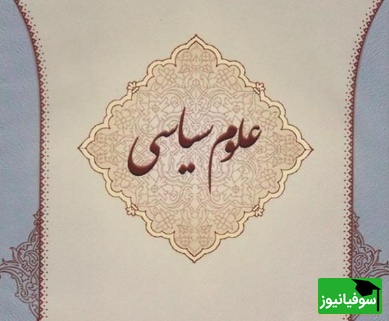 علوم سیاسی
سوفیانیوز